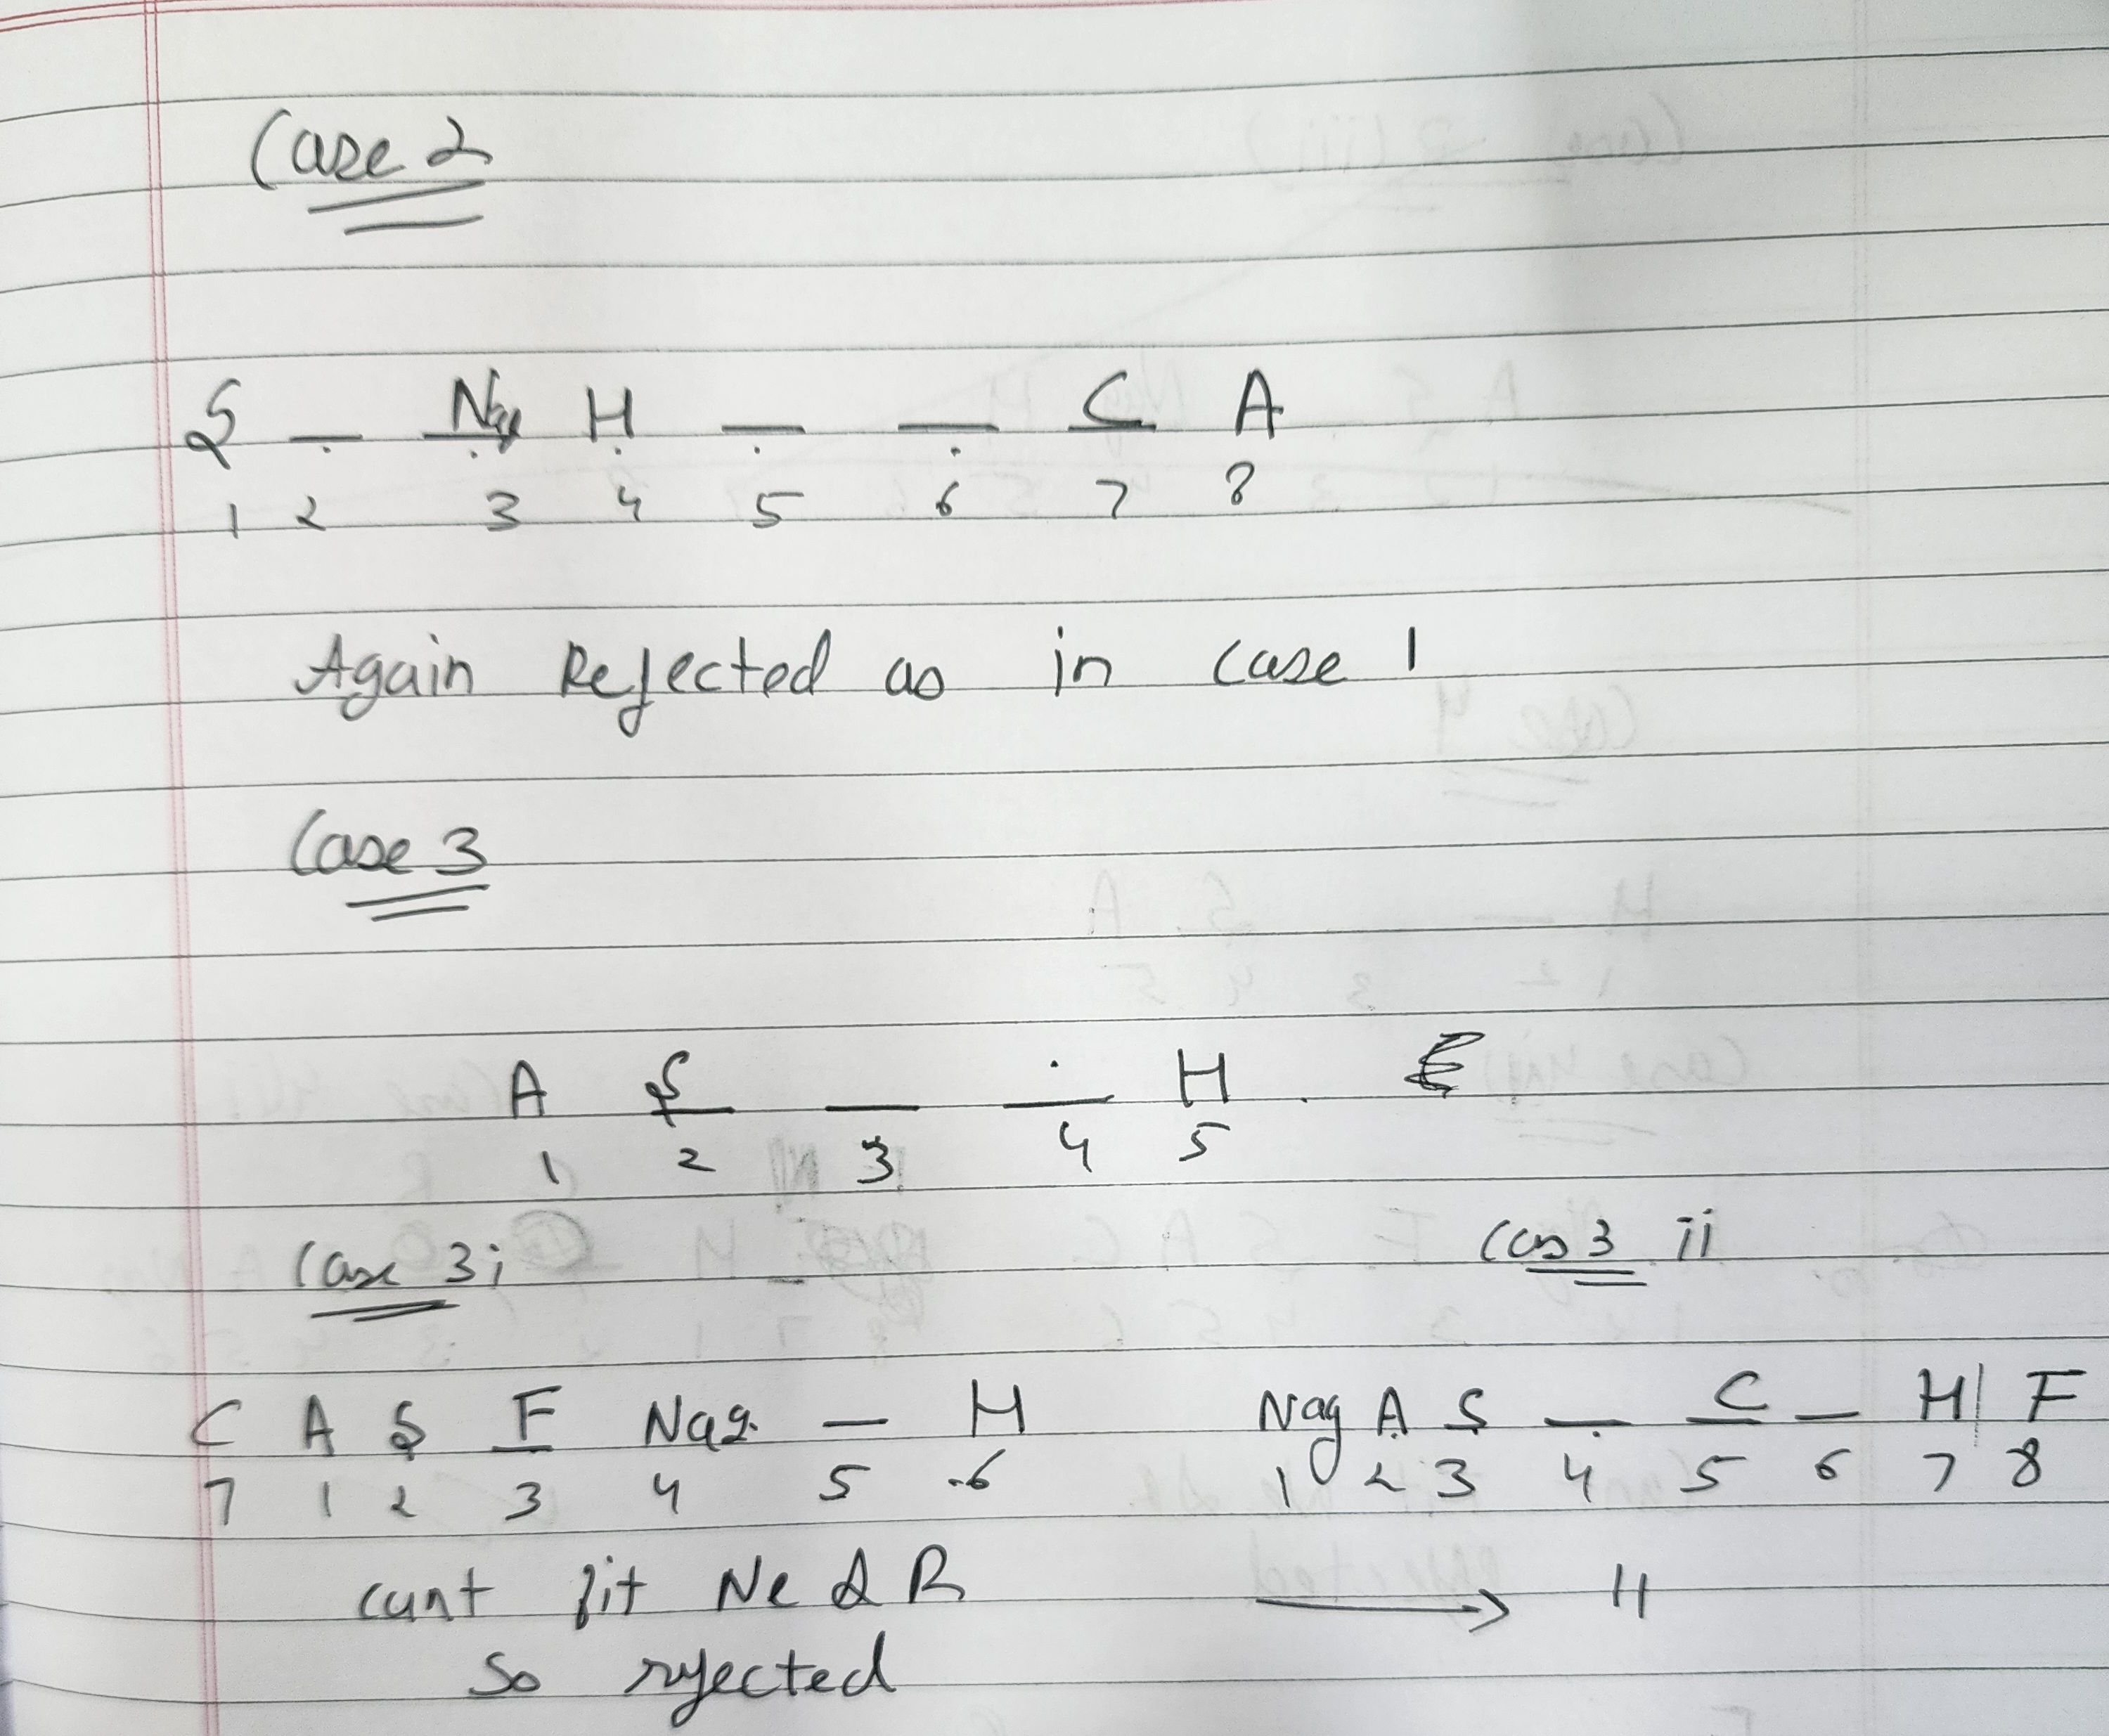 Case 2
S _ Nag H _ _ C A
1 2 3 4 5 6 7 8
Again Rejected as in case 1
Case 3
A S _ _ H
1 2 3 4 5
Case 3i Cas 3 ii
C A S F Nag. _ H Nag A S _ C _ H F
7 1 2 3 4 5 6 1 2 3 4 5 6 7 8
cant fit Ne & R → 11
So rejected